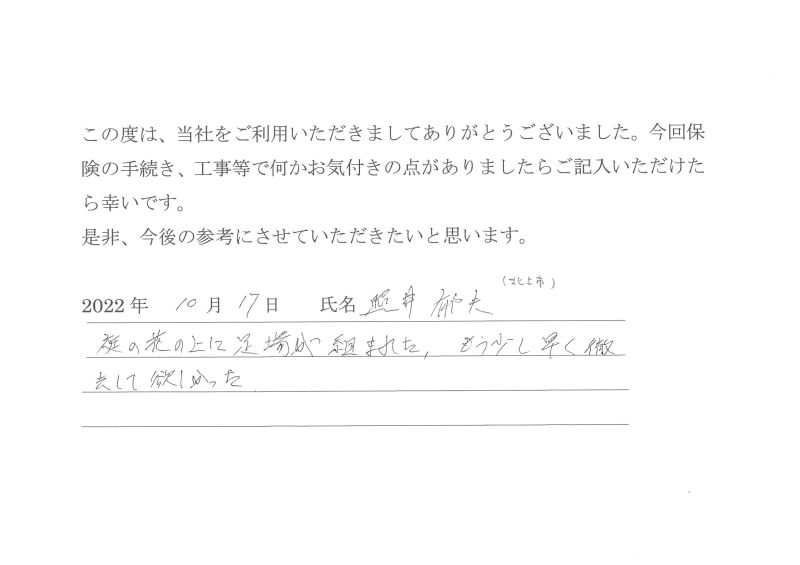 この度は、当社をご利用いただきましてありがとうございました。今回保
険の手続き、工事等で何かお気付きの点がありましたらご記入いただけた
ら幸いです。
是非、今後の参考にさせていただきたいと思います。
(北上市)
2022年 10月 17日 氏名 照井 郁夫
庭の花の上に足場が組まれた, もう少し早く撤
去して欲しかった